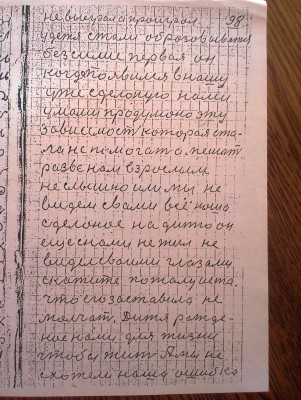 не выиграла проиграл 98.
у детя стали образовыватся
безсилие первая он
когда появился в нашу
уже сделоную нами
умами продумоно эту
зависимост которая ста-
ла не помогат а мешат
развеном взрослым
не слышно им мы не
видем свами всё наша
сделоное на дитю он
еще снами не жил не
видел своими глазами
скажите пожалуйста
что его заставила не
молчат. Дитя рожде-
ное нами для жизни
чтобы жит А мы не
схотели наша ошибка